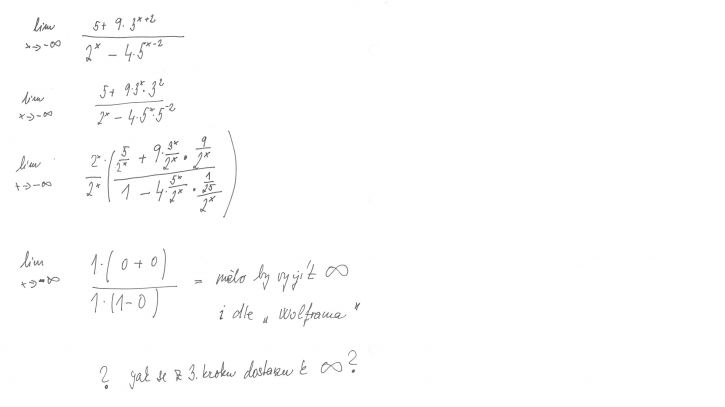 lim x→-∞ (5 + 9·3^(x+2)) / (2^x - 4·5^(x-2))
lim x→-∞ (5 + 9·3^x·3^2) / (2^x - 4·5^x·5^-2)
lim x→-∞ 2^x/2^x · ((5/2^x + 9·3^x/2^x · 9/2^x) / (1 - 4·5^x/2^x · (1/25)/2^x))
lim x→-∞ 1·(0+0) / 1·(1-0) = mělo by vyjít ∞
i dle „Wolframa"
? jak se z 3. kroku dostanu k ∞?